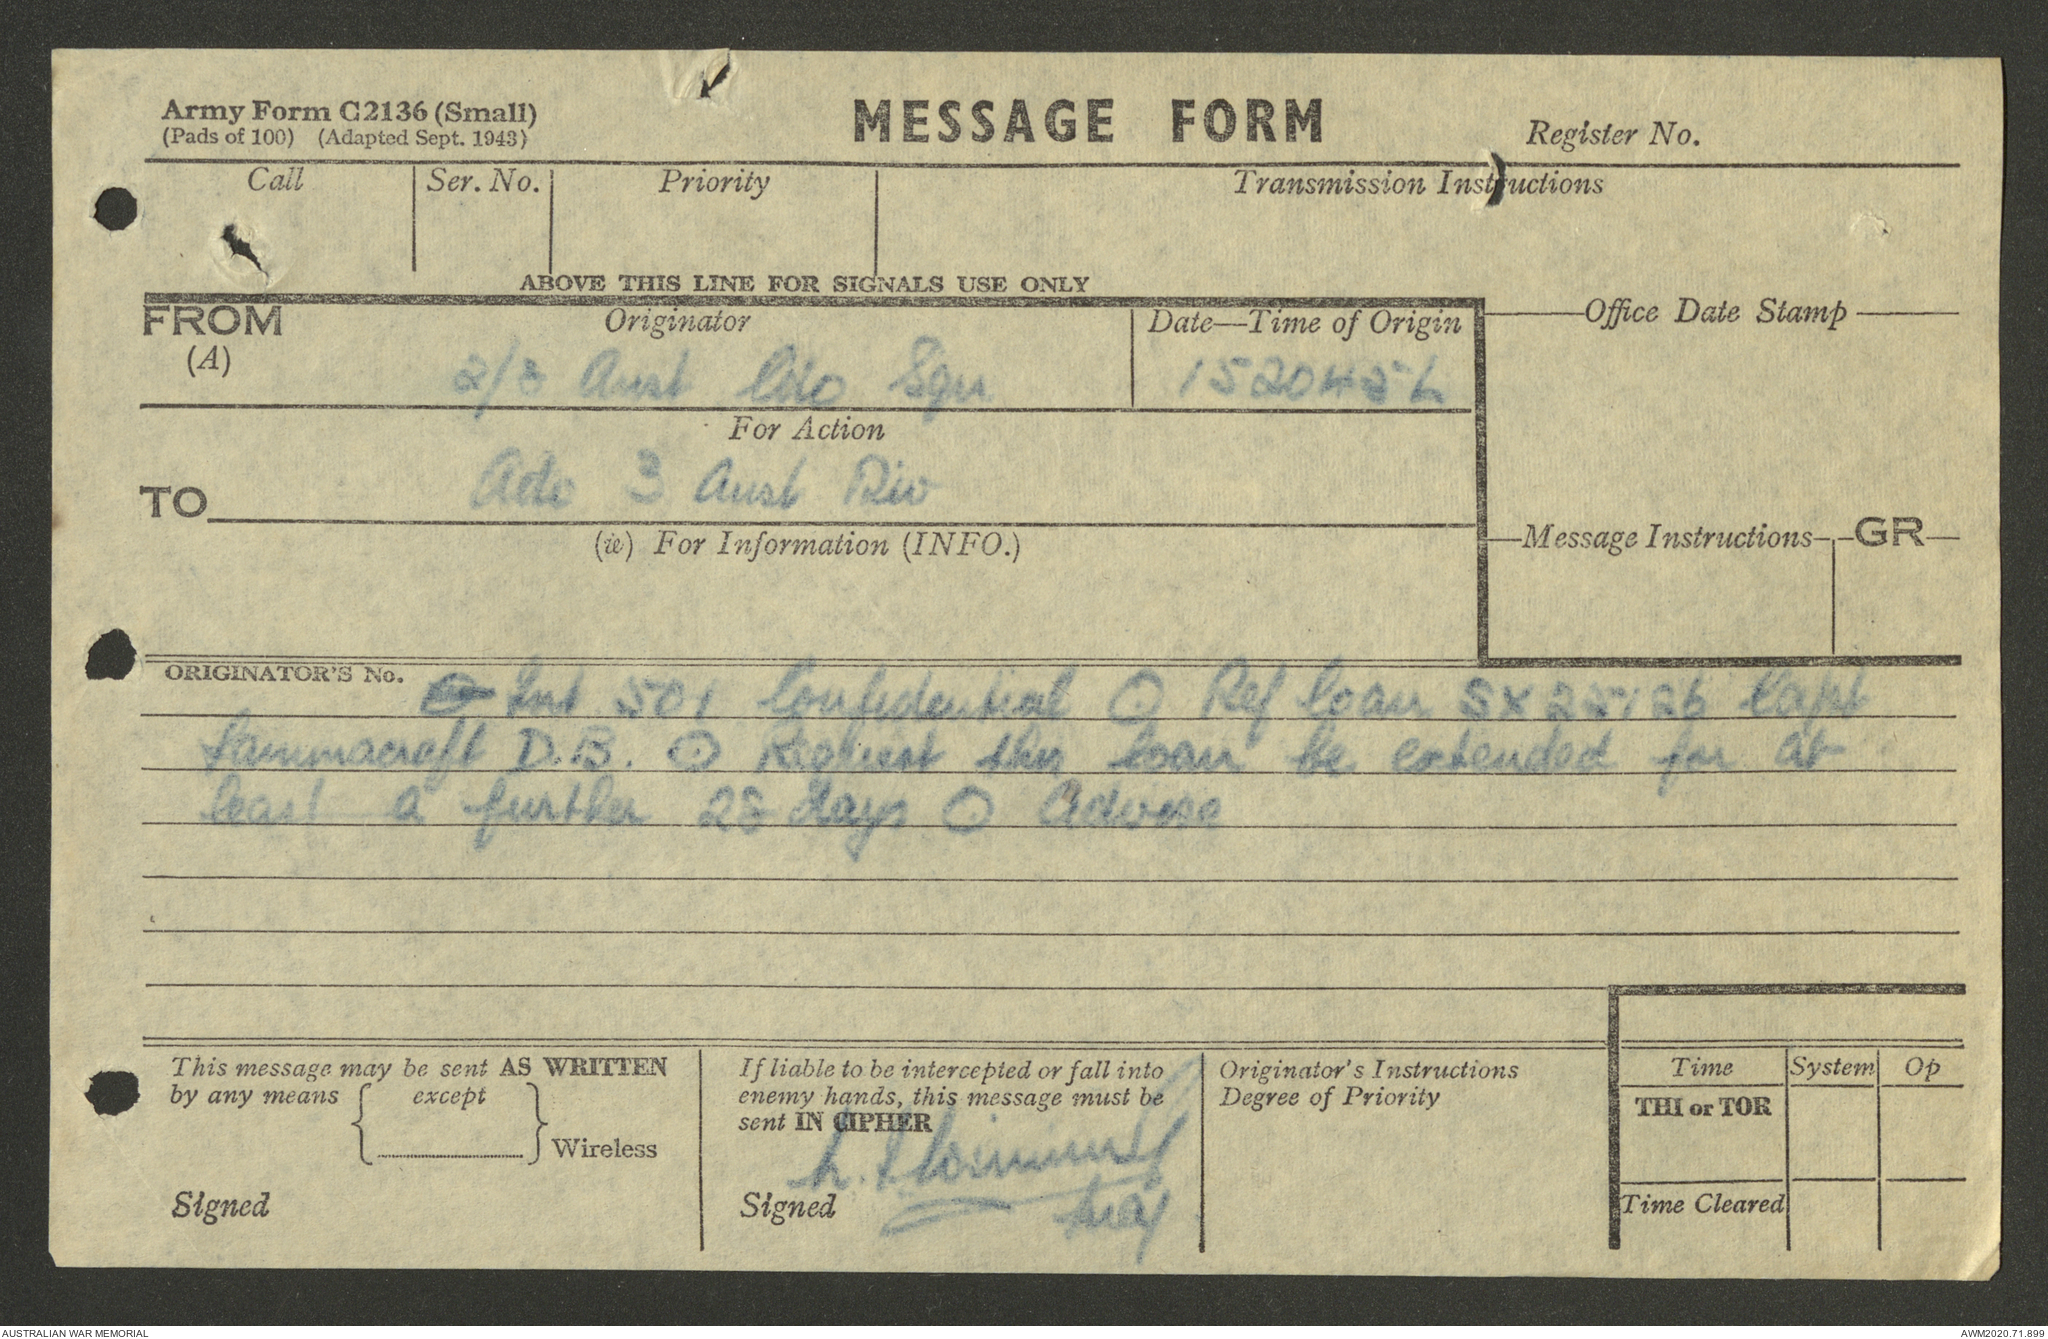 Army Form C2136 (Small)
(Pads of 100) (Adapted Sept. 1943)
MESSAGE FORM
Register No.
Call
Ser. No.
Priority
Transmission Instructions
ABOVE THIS LINE FOR SIGNALS USE ONLY
FROM
(A)
Originator
Date—Time of Origin
Office Date Stamp
2/3 Aust Cdo Sqn
152045L
For Action
TO
Adv 3 Aust Div
(ie) For Information (INFO.)
Message Instructions
GR
ORIGINATOR'S No.
Int 501 Confidential O Ref loan SX25126 Capt
D.B. O Request this loan be extended for at
least a further 28 days O Advise
This message may be sent AS WRITTEN
by any means
except
Wireless
Signed
If liable to be intercepted or fall into
enemy hands, this message must be
sent IN CIPHER
Signed
Maj
Originator's Instructions
Degree of Priority
Time
System
Op
THI or TOR
Time Cleared
AUSTRALIAN WAR MEMORIAL
AWM2020.71.899